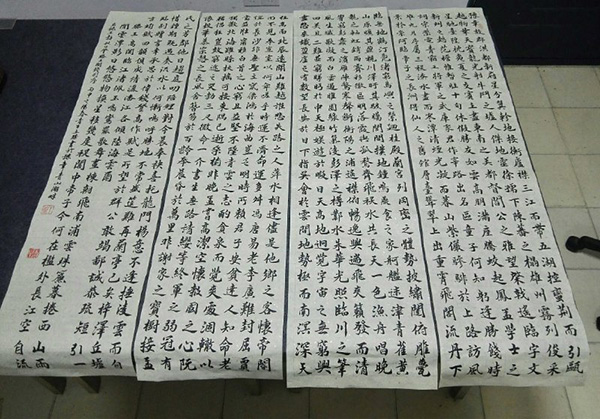 豫章故郡洪都新府星分翼軫地接衡廬襟三江而帶五湖控蠻荊而引甌
越物華天寶龍光射牛斗之墟人傑地靈徐孺下陳蕃之榻雄州霧列俊采
星馳臺隍枕夷夏之交賓主盡東南之美都督閻公之雅望棨戟遙臨宇文
新州之懿範襜帷暫駐十旬休假勝友如雲千里逢迎高朋滿座騰蛟起鳳孟學士之
詞宗紫電青霜王將軍之武庫家君作宰路出名區童子何知躬逢勝餞時
維九月序屬三秋潦水盡而寒潭清煙光凝而暮山紫儼驂騑於上路訪風
景於崇阿臨帝子之長洲得仙人之舊館層巒聳翠上出重霄飛閣流丹下
臨無地鶴汀鳧渚窮島嶼之縈迴桂殿蘭宮列岡巒之體勢披繡闥俯雕甍
山原曠其盈視川澤紆其駭矚閭閻撲地鐘鳴鼎食之家舸艦迷津青雀黃
龍之軸虹銷雨霽彩徹區明落霞與孤鶩齊飛秋水共長天一色漁舟唱晚
響窮彭蠡之濱雁陣驚寒聲斷衡陽之浦遙襟俯暢逸興遄飛爽籟發而清
風生纖歌凝而白雲遏睢園綠竹氣凌彭澤之樽鄴水朱華光照臨川之筆
四美具二難并窮睇眄於中天極娛遊於暇日天高地迥覺宇宙之無窮興
盡悲來識盈虛之有數望長安於日下指吳會於雲間地勢極而南溟深天
柱高而北辰遠關山難越誰悲失路之人萍水相逢盡是他鄉之客懷帝閽
而不見奉宣室以何年嗟乎時運不濟命運多舛馮唐易老李廣難封屈賈
誼於長沙非無聖主竄梁鴻於海曲豈乏明時所賴君子安貧達人知命老
當益壯寧移白首之心窮且益堅不墜青雲之志酌貪泉而覺爽處涸轍以
猶歡北海雖賒扶搖可接東隅已逝桑榆非晚孟嘗高潔空懷報國之心阮
籍猖狂豈效窮途之哭勃三尺微命一介書生無路請纓等終軍之弱冠有
懷投筆慕宗慤之長風舍簪笏於百齡奉晨昏於萬里非謝家之寶樹接孟
氏之芳鄰他日趨庭叨陪鯉對今晨捧袂喜托龍門楊意不逢撫凌雲而自
惜鍾期既遇奏流水以何慚嗚呼勝地不常盛筵難再蘭亭已矣梓澤丘墟
臨別贈言幸承恩於偉餞登高作賦是所望於群公敢竭鄙誠恭疏短引一
言均賦四韻俱成請灑潘江各傾陸海云爾
滕王高閣臨江渚佩玉鳴鸞罷歌舞畫棟朝飛南浦雲珠簾暮捲西山雨
閑雲潭影日悠悠物換星移幾度秋閣中帝子今何在檻外長江空自流